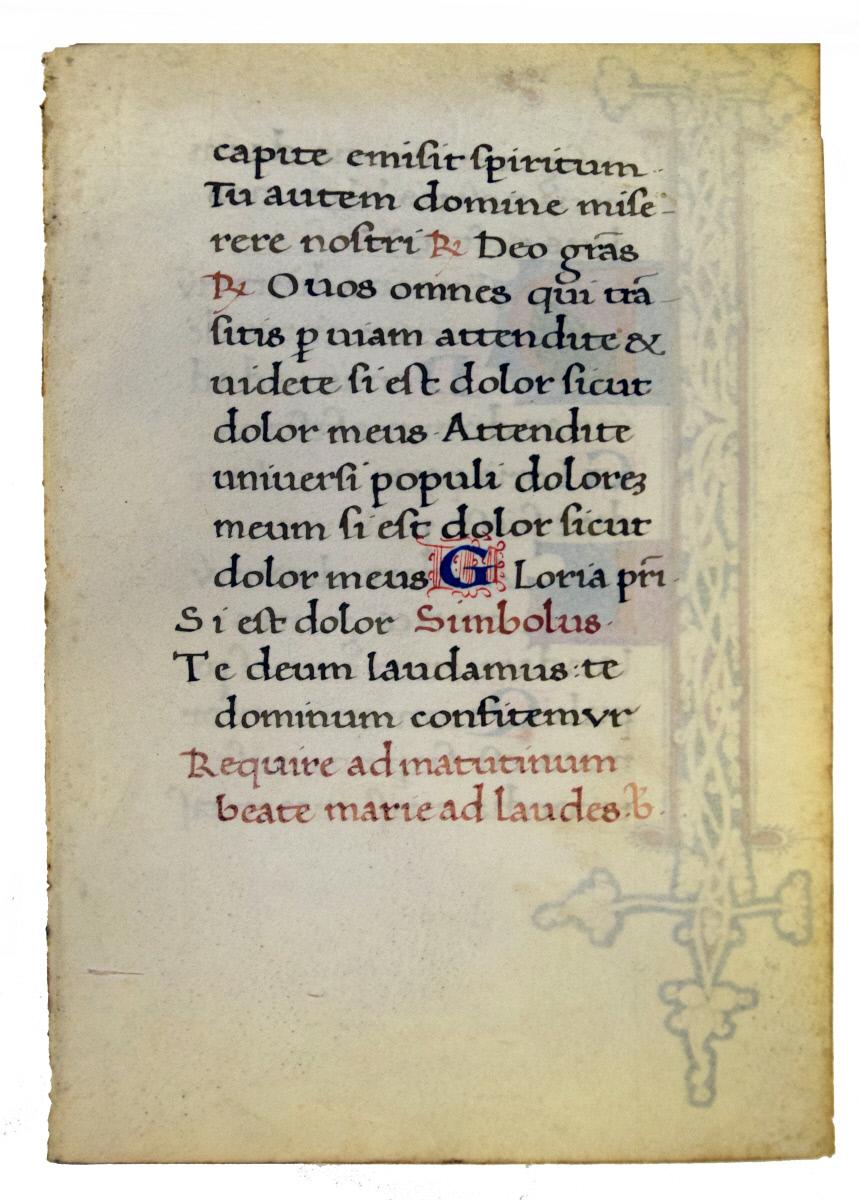 capite emiſit ſpiritum
Tu autem domine miſe-
rere noſtri ℟ Deo grās
℟ O uos omnes qui trā
ſitis ꝑ uiam attendite &
uidete ſi eſt dolor ſicut
dolor meus Attendite
uniuerſi populi doloreꝫ
meum ſi eſt dolor ſicut
dolor meus G Loria pr̄i
S i eſt dolor Simbolus
T e deum laudamus: te
dominum confitemur
Require ad matutinum
beate marie ad laudes.